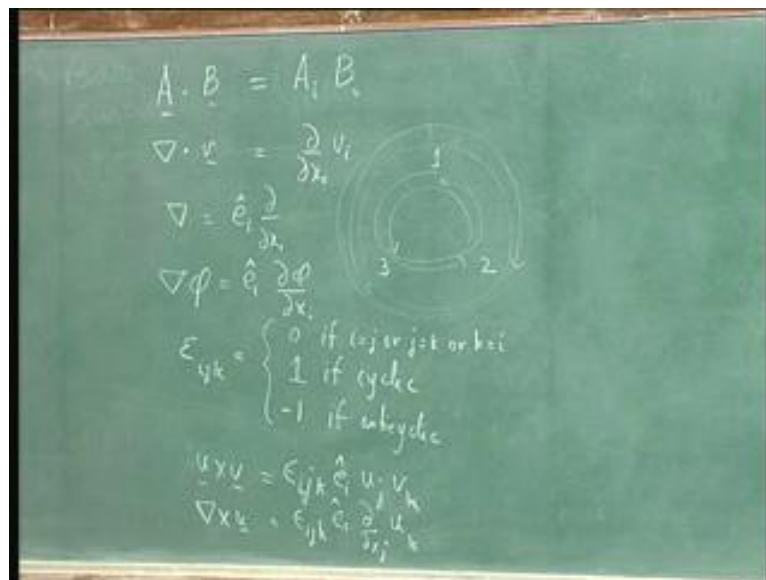 A · B = Aᵢ Bᵢ
∇ · v = ∂/∂xᵢ vᵢ
∇ = êᵢ ∂/∂xᵢ
∇φ = êᵢ ∂φ/∂xᵢ
1
3 2
εᵢⱼₖ = { 0 if i=j or j=k or k=i
1 if cyclic
-1 if anticyclic
u×v = εᵢⱼₖ êᵢ uⱼ vₖ
∇×u = εᵢⱼₖ êᵢ ∂/∂xⱼ uₖ